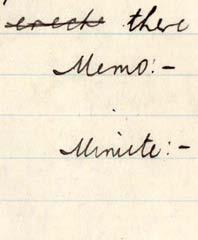 erecte there
Memo:-
Minute:-